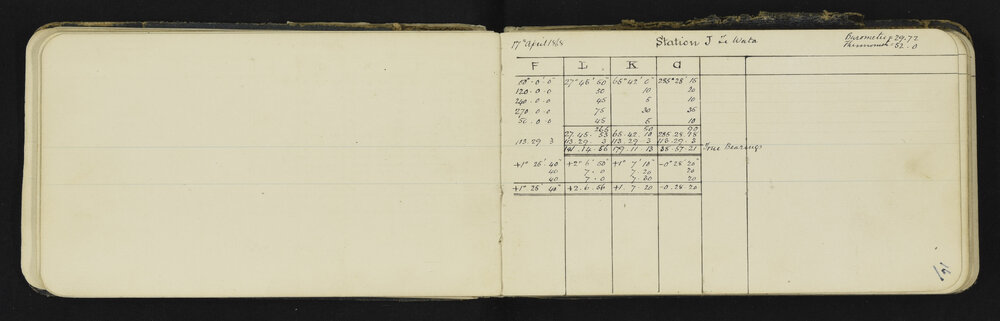 17th April 1868 Station J Te Wata Barometer 29.72
Thermomr 52.0
F L K G
00° 0' 0" 27° 45' 50" 65° 42' 0" 285° 28' 15
120 . 0 . 0 50 10 20
240 . 0 . 0 45 5 10
270 . 0 . 0 75 30 35
50 . 0 . 0 45 5 10
265 50 90
27. 45. 53 65. 42. 10 285. 28. 18
113. 29. 3 113. 29. 3 113. 29. 3 113. 29. 3
141. 14. 56 179. 11. 13 38. 57. 21 True Bearings
+1° 25' 40" +2° 6' 50" +1° 7' 10" -0° 28' 20"
40 7. 0 7. 20 20
40 7. 0 7. 30 20
+1° 25' 40" +2. 6. 56 +1. 7. 20 -0. 28 20